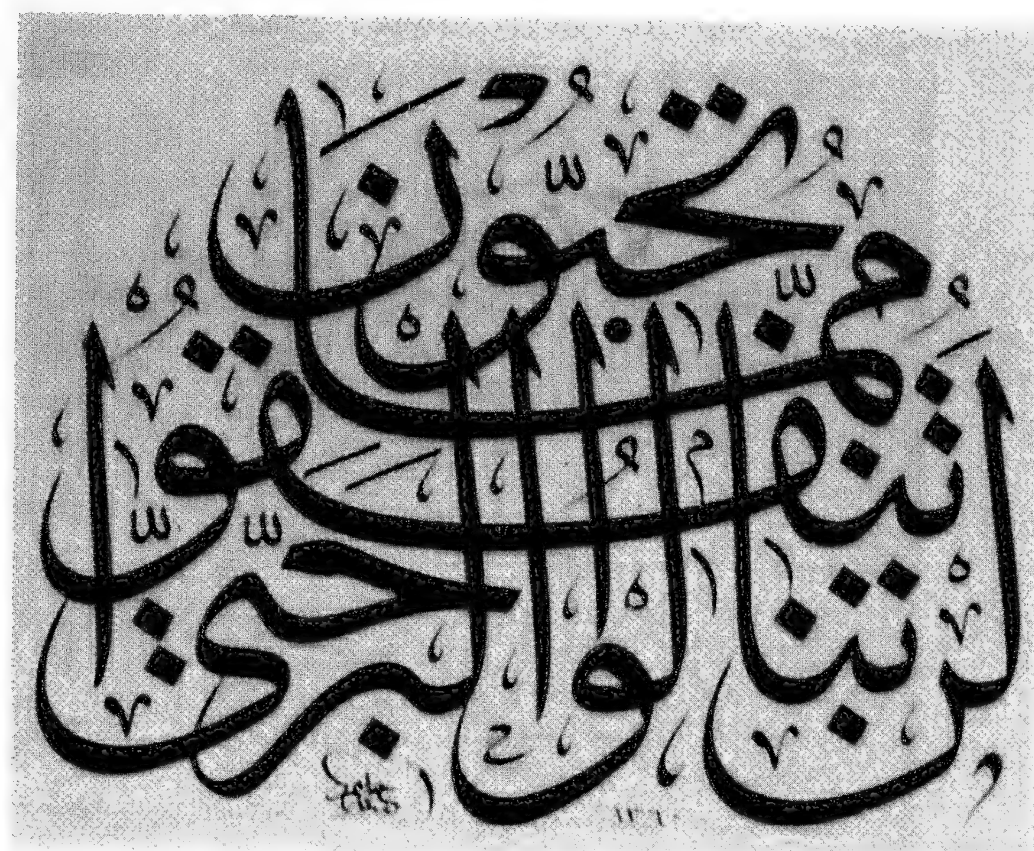 لَنْ تَنَالُوا الْبِرَّ حَتَّى تُنْفِقُوا مِمَّا تُحِبُّونَ